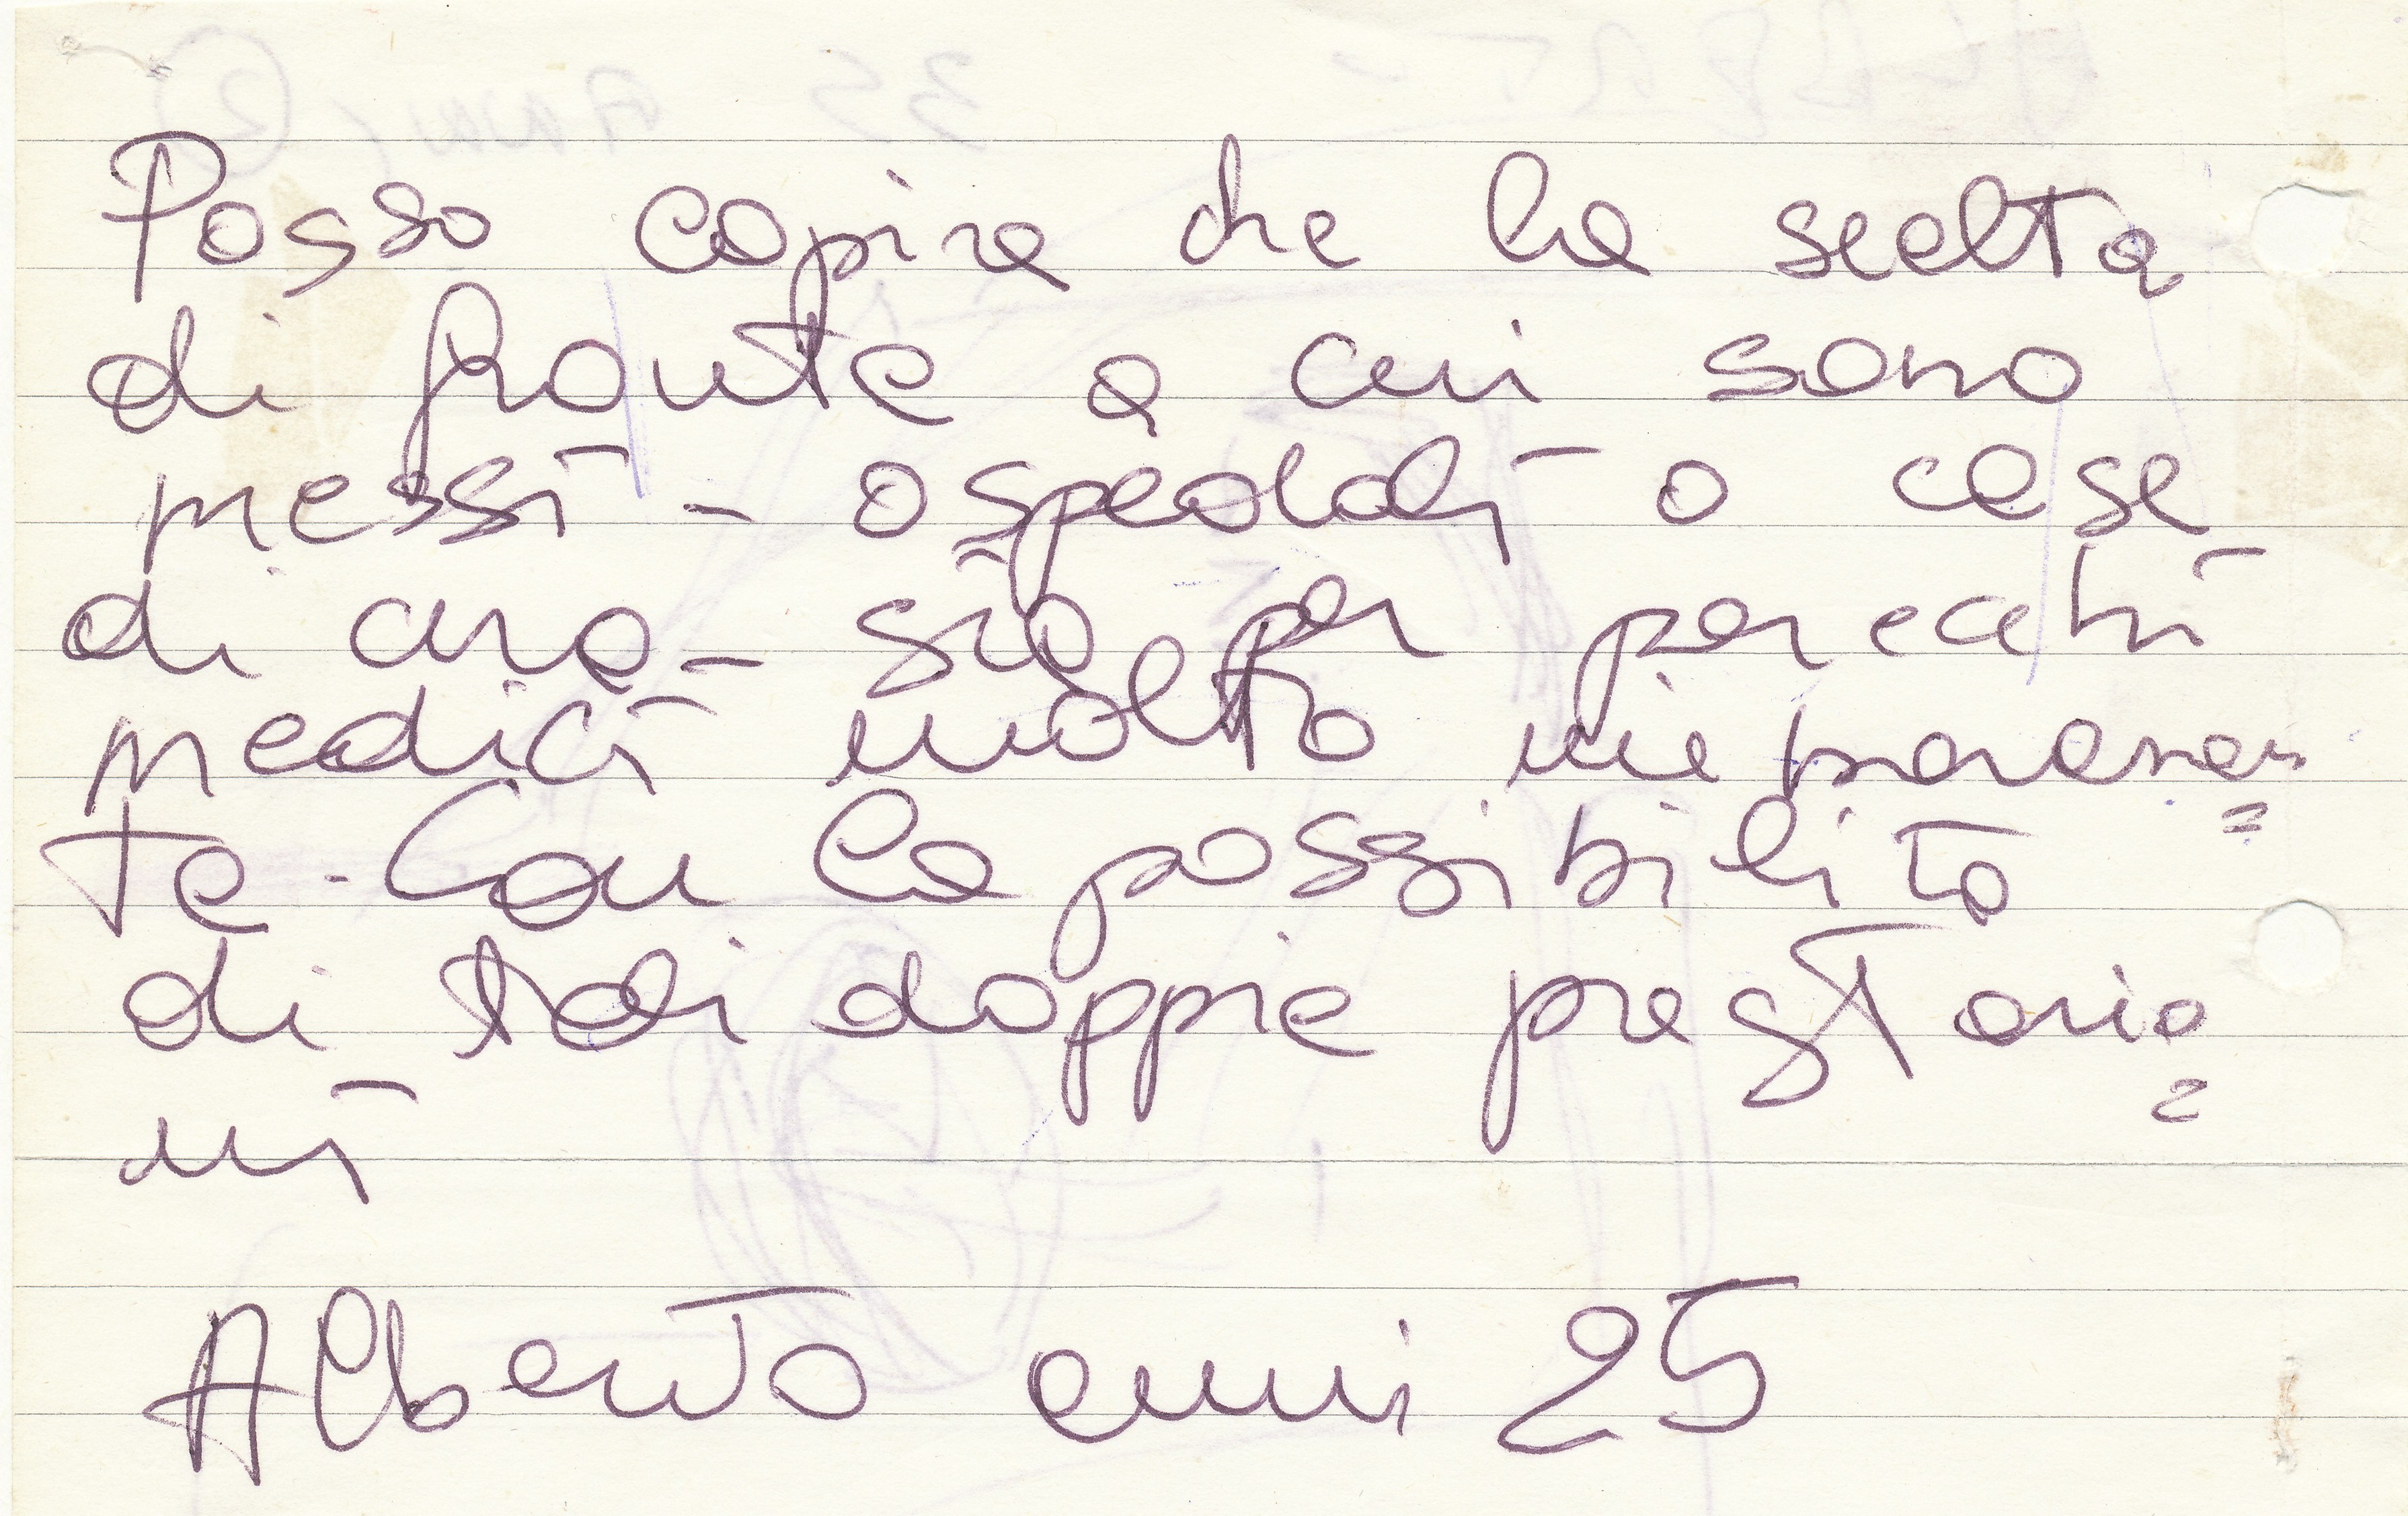 Posso capire che la scelta
di fronte a cui sono
messi - ospedali o case
di cura - sia per parecchi
medici molto
te. Con la possibilità
di tali doppie prestazio=
ni
Alberto anni 25